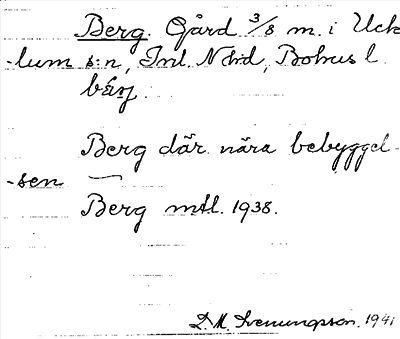 Berg. Gård 3/8 m. i Uck-
lum s:n, Inl. N. hd, Bohus l.
Berg där nära bebyggel-
sen
Berg mtl. 1938.
D. M. Svenungsson. 1941